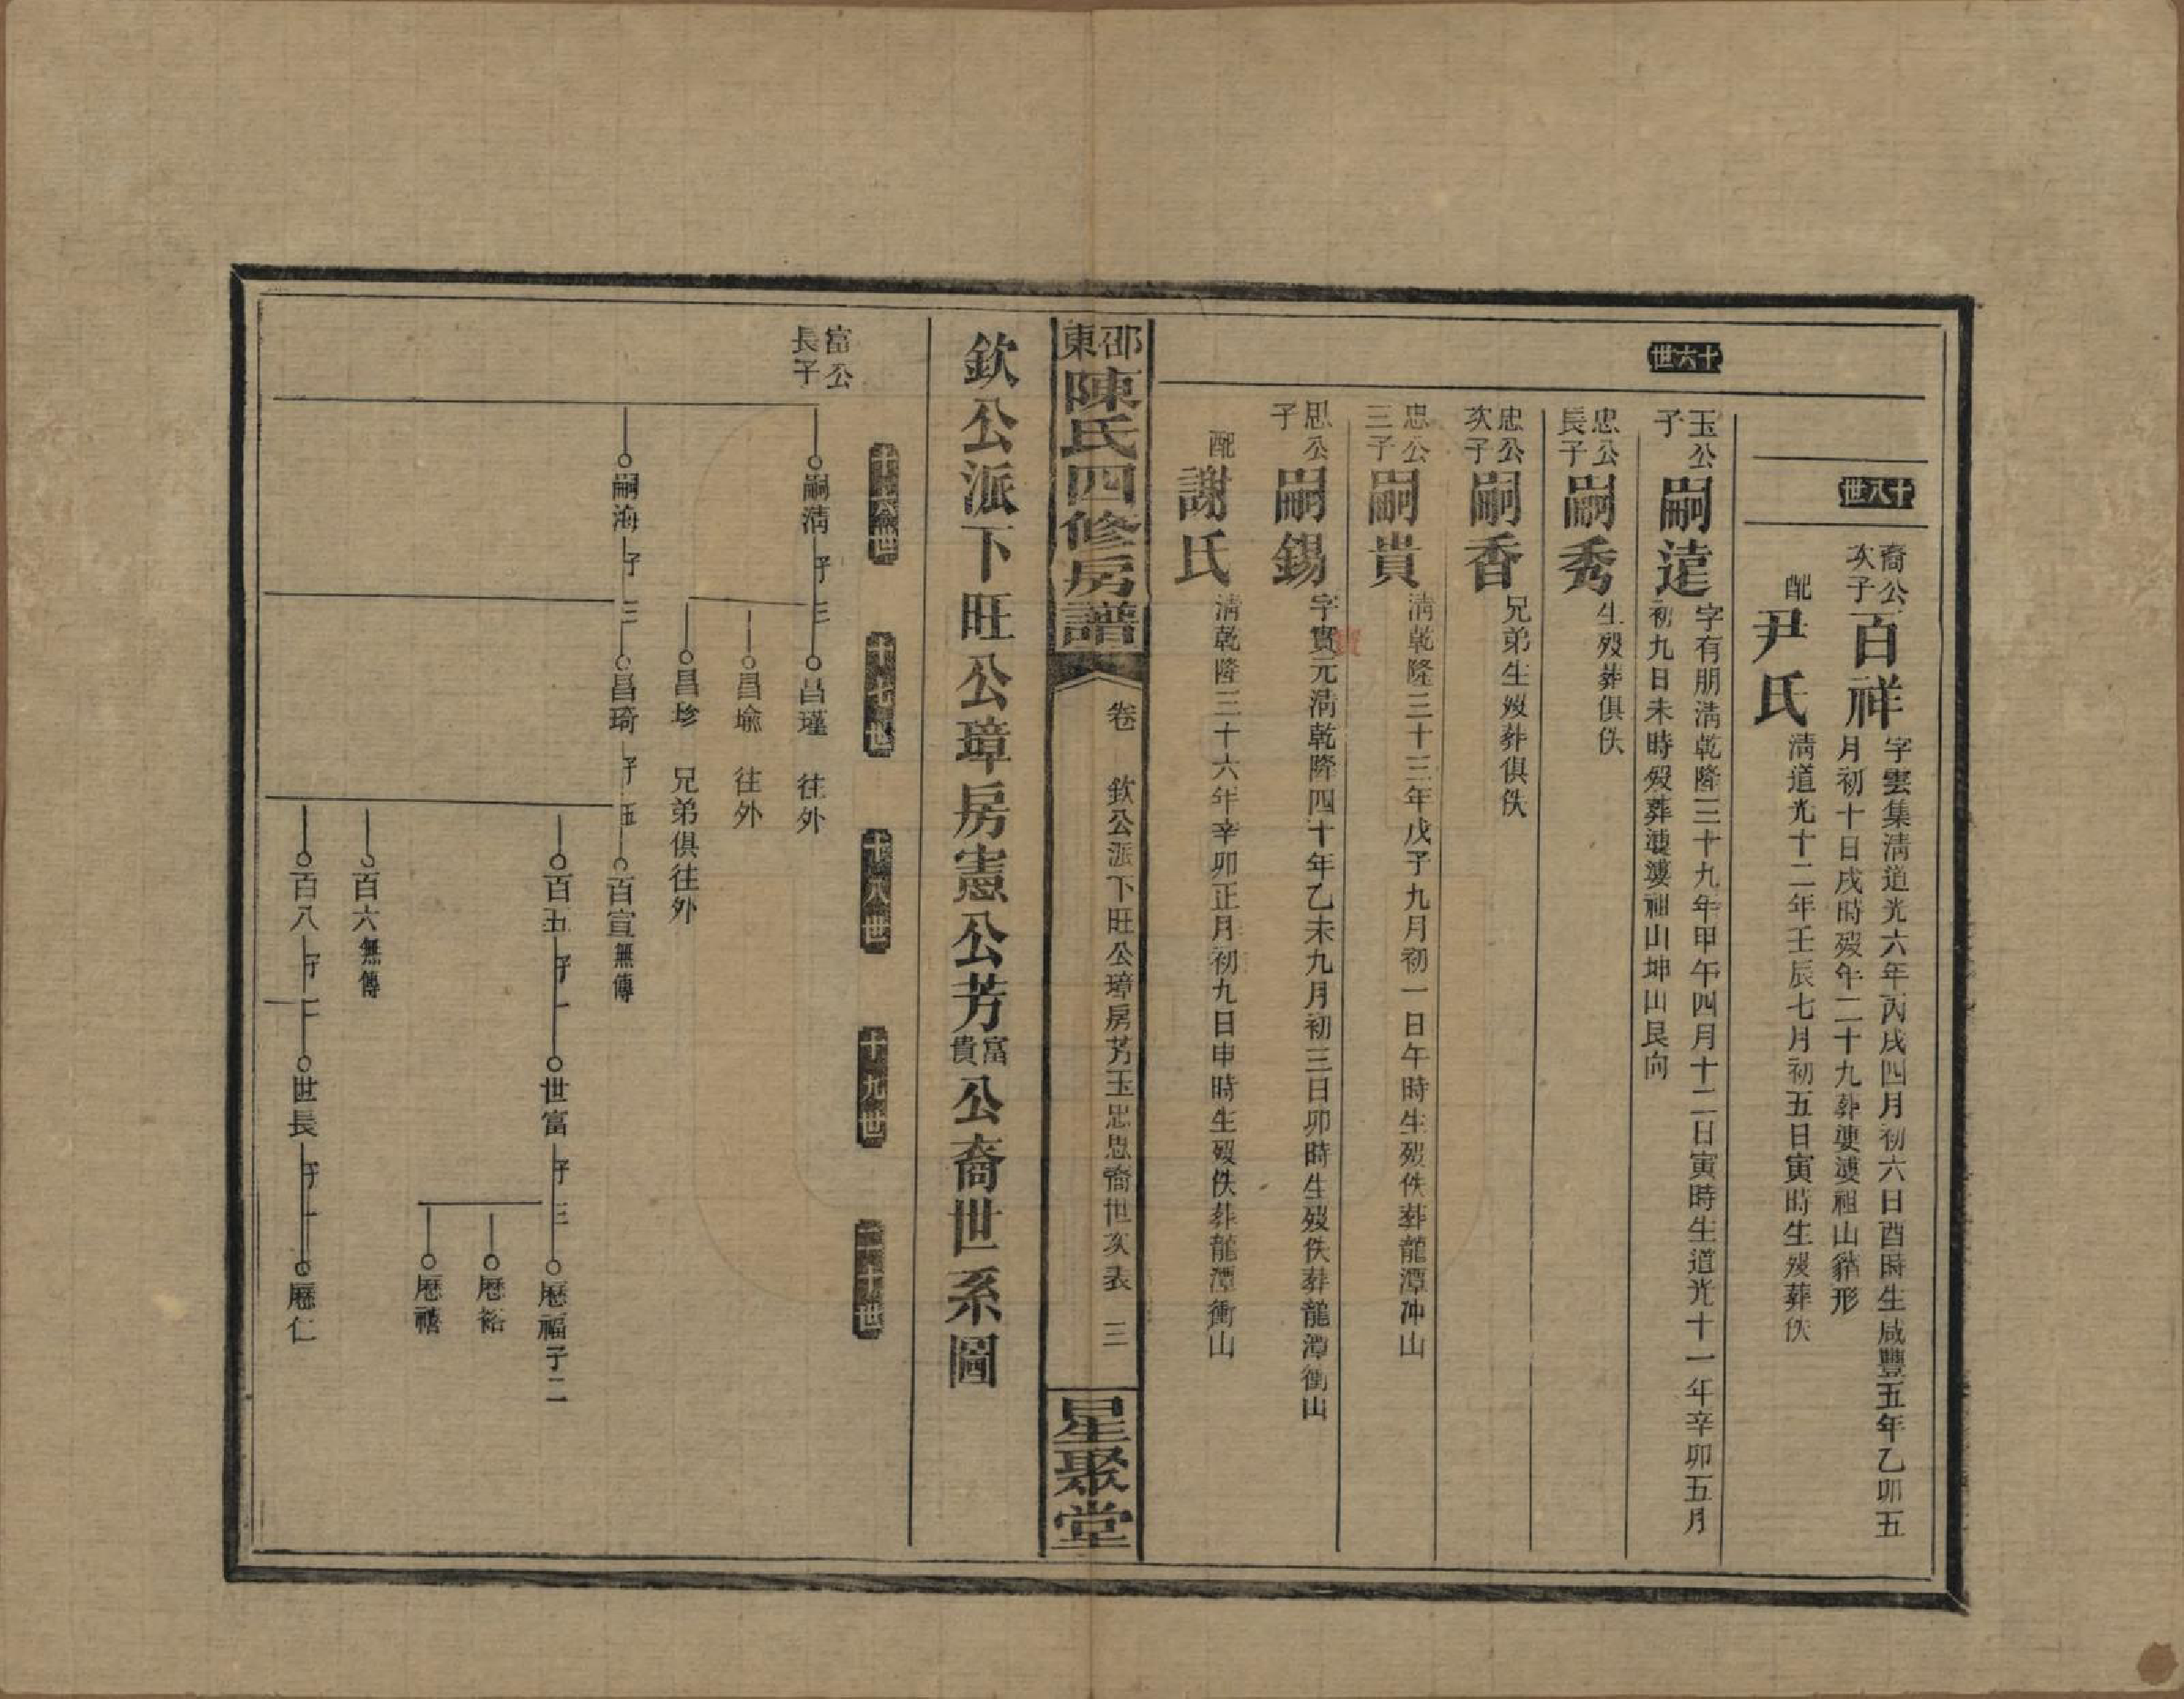 十八世
裔公次子
百祥
字雲集清道光六年丙戌四月初六日酉時生咸豐五年乙卯五
月初十日戌時歿年二十九葬婆婆祖山貓形
配
尹氏
清道光十二年壬辰七月初五日寅時生歿葬佚
十六世
玉公子
嗣逵
字有朋清乾隆三十九年甲午四月十二日寅時生道光十一年辛卯五月
初九日未時歿葬婆婆祖山坤山艮向
忠公長子
嗣秀
生歿葬俱佚
忠公次子
嗣香
兄弟生歿葬俱佚
忠公三子
嗣貴
清乾隆三十三年戊子九月初一日午時生歿佚葬龍潭冲山
思公子
嗣錫
字實元清乾隆四十年乙未九月初三日卯時生歿佚葬龍潭衝山
配
謝氏
清乾隆三十六年辛卯正月初九日申時生歿佚葬龍潭衝山
邵東陳氏四修房譜
卷
欽公派下旺公璋房芳玉忠思裔世次表
三
星聚堂
欽公派下旺公璋房憲公芳富貴公裔世系圖
十六世
十七世
十八世
十九世
二十世
富公長子
嗣清 子三
昌瑾 往外
昌瑜 往外
昌珍 兄弟俱往外
嗣海 子三
昌琦 子五
百宣 無傳
百五 子一
世富 子三
歷福 子二
歷裕
歷禧
百六 無傳
百八 子二
世長 子一
歷仁